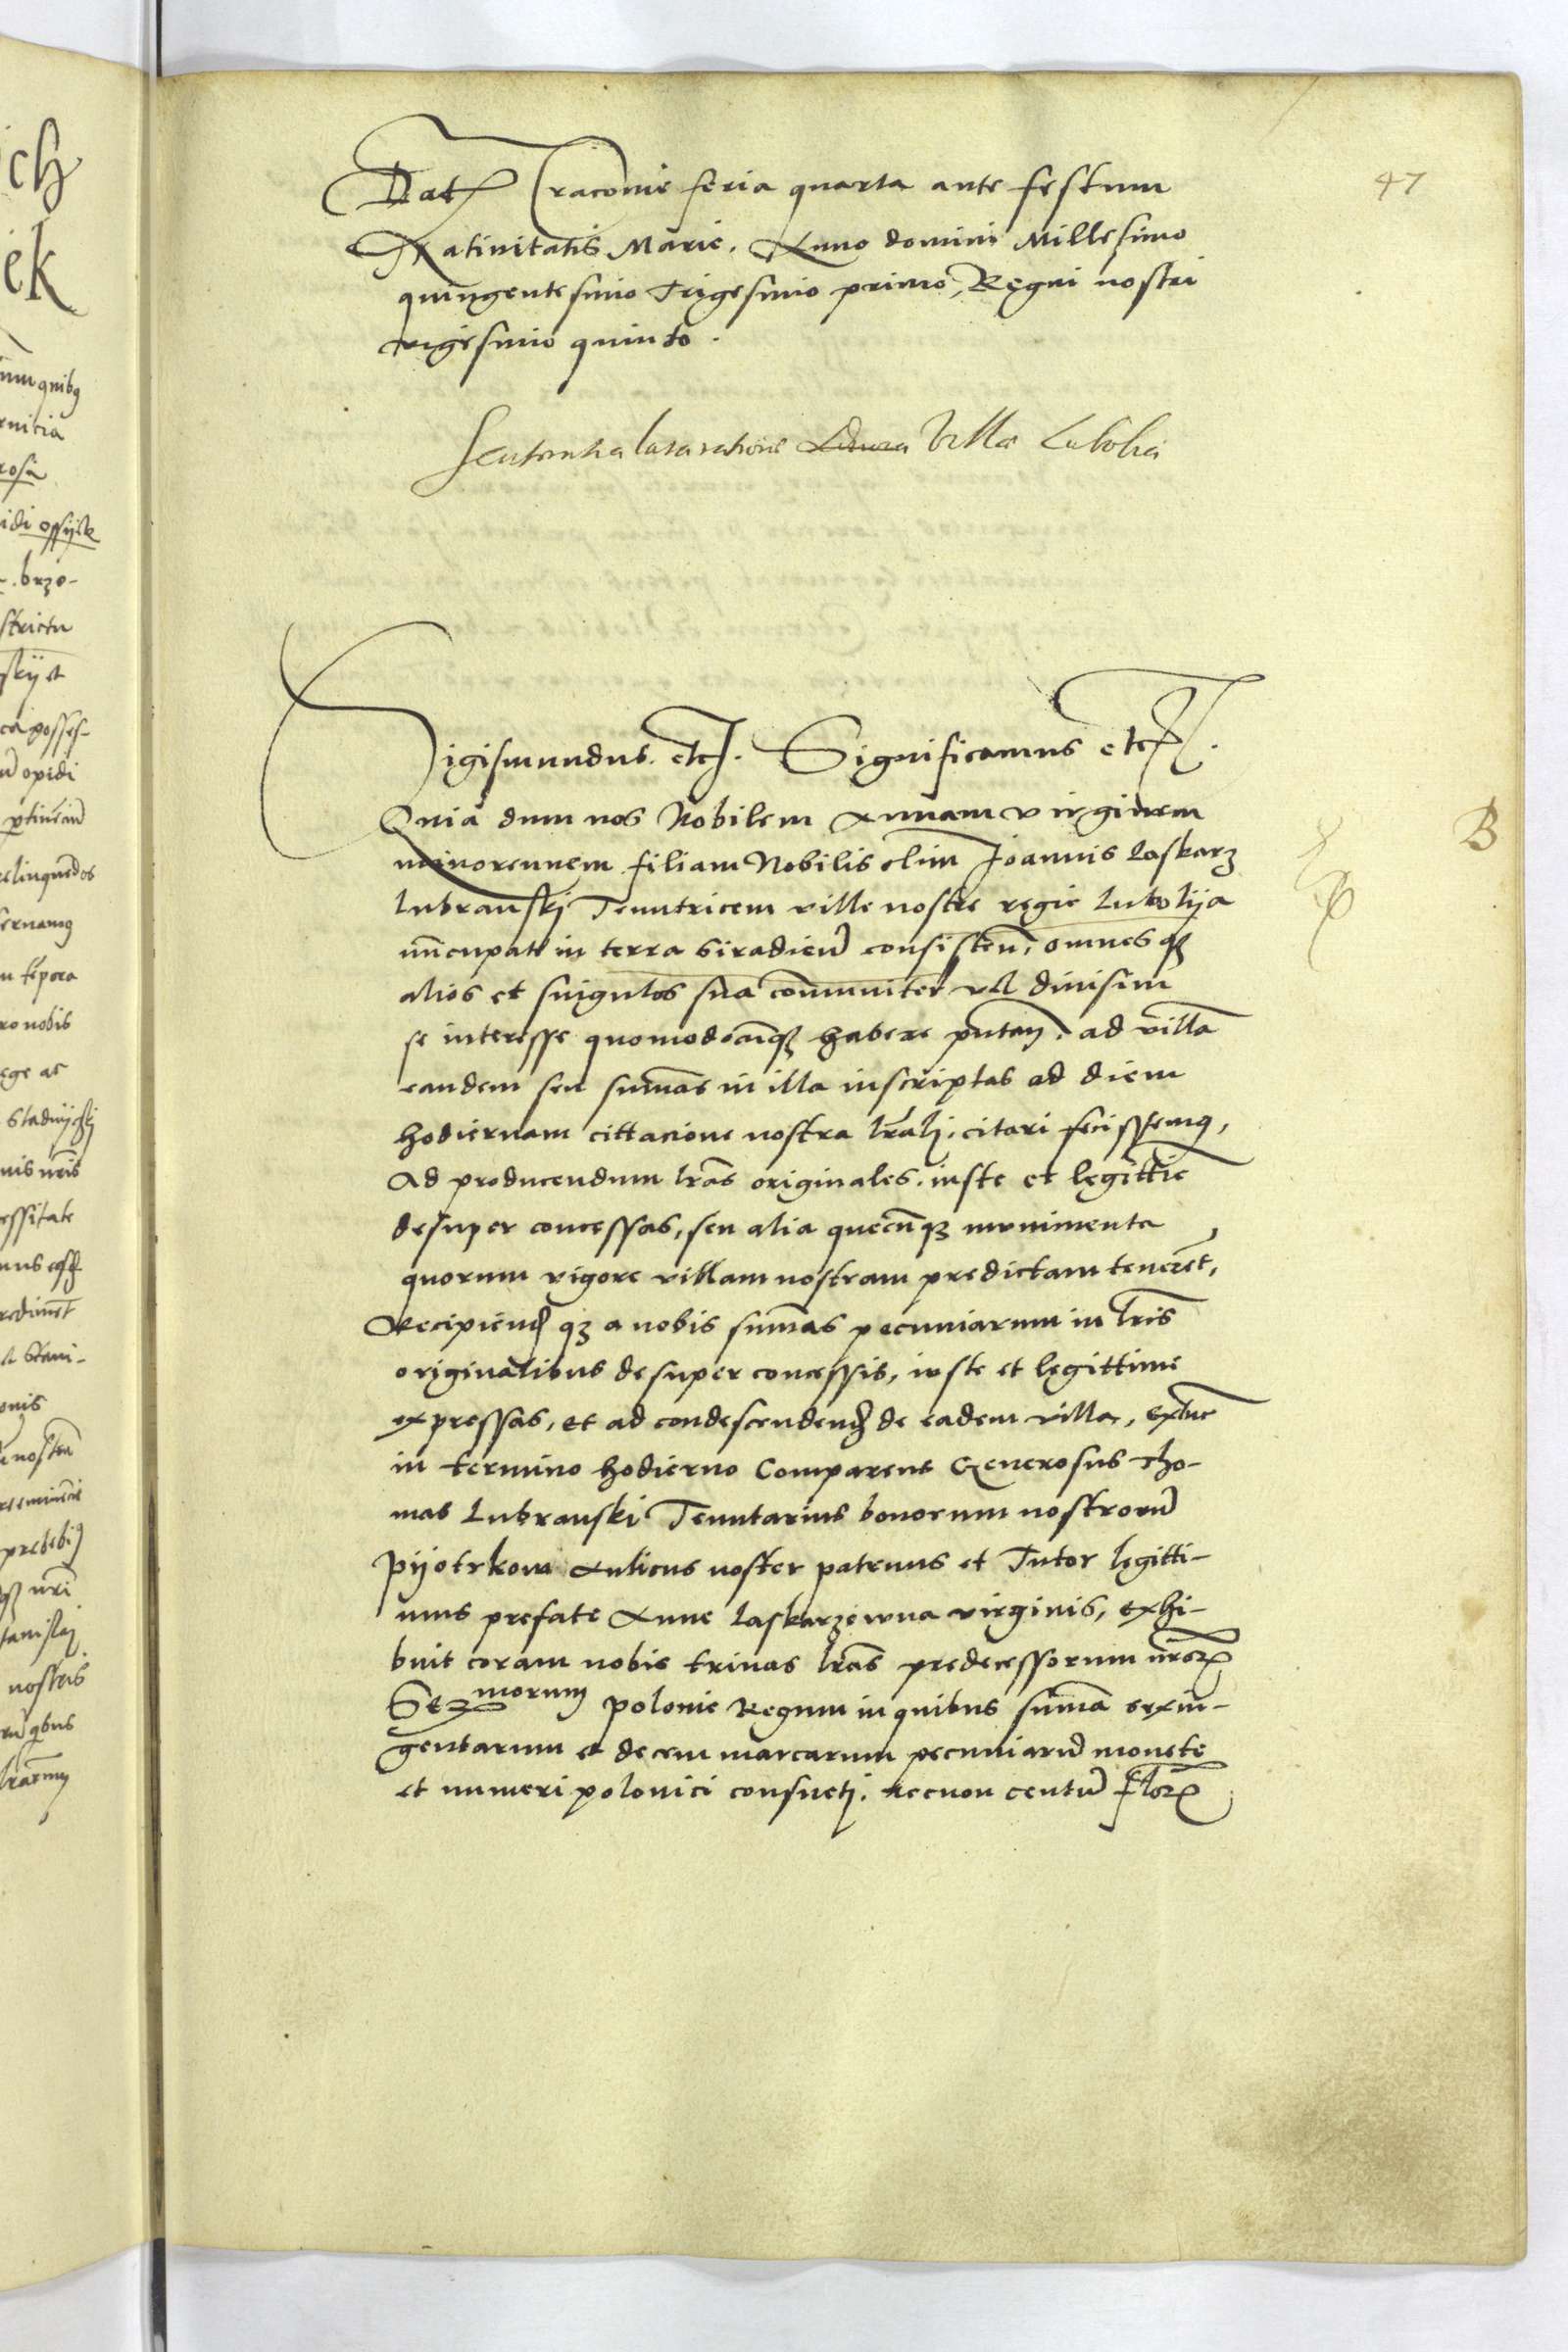 47
Dat Cracovie feria quarta ante festum
Nativitatis Marie. Anno domini Millesimo
quingentesimo Trigesimo primo, Regni nostri
vigesimo quinto.
Sententia lata ratione Villae Lubolia
Sigismundus. etc. Significamus etc.
Quia dum nos Nobilem Annam virginem
B
minorennem filiam Nobilis olim Joannis Laskarz
Lubranskj Tenutricem ville nostre regie Lubolija
nūcupate in terra Siradieñ consisteñ, omnes qz
alios et singulos sua communiter vel divisim
se interesse quomodocūqz habere putañ. ad villā
eandem seu sum̄as in illa inscriptas ad diem
hodiernam cittacione nostra lr̄ali. citari fecissemus,
Ad producendum lr̄as originales. iuste et legittīe
desuper concessas, seu alia quecūqz munimenta
quorum vigore villam nostram predictam tenerēt,
Recipiend qz a nobis sum̄as pecuniarum in lr̄is
originalibus desuper concessis, iuste et legittime
expressas, et ad condescendend de eadem villa, extūc
in termino hodierno Comparens Generosus Tho-
mas Lubranski Tenutarius bonorum nostrorū
Pijotrkow Aulicus noster patruus et Tutor legitti-
mus prefate Anne Laskarzewna virginis, exhi-
buit coram nobis trinas lr̄as predecessorum nr̄orz
Serᵐᵒʳᵘᵐ Polonie Regum in quibus sum̄a sexin-
gentarum et decem marcarum pecuniarū monete
et numeri polonici consuetj. necnon centū florz